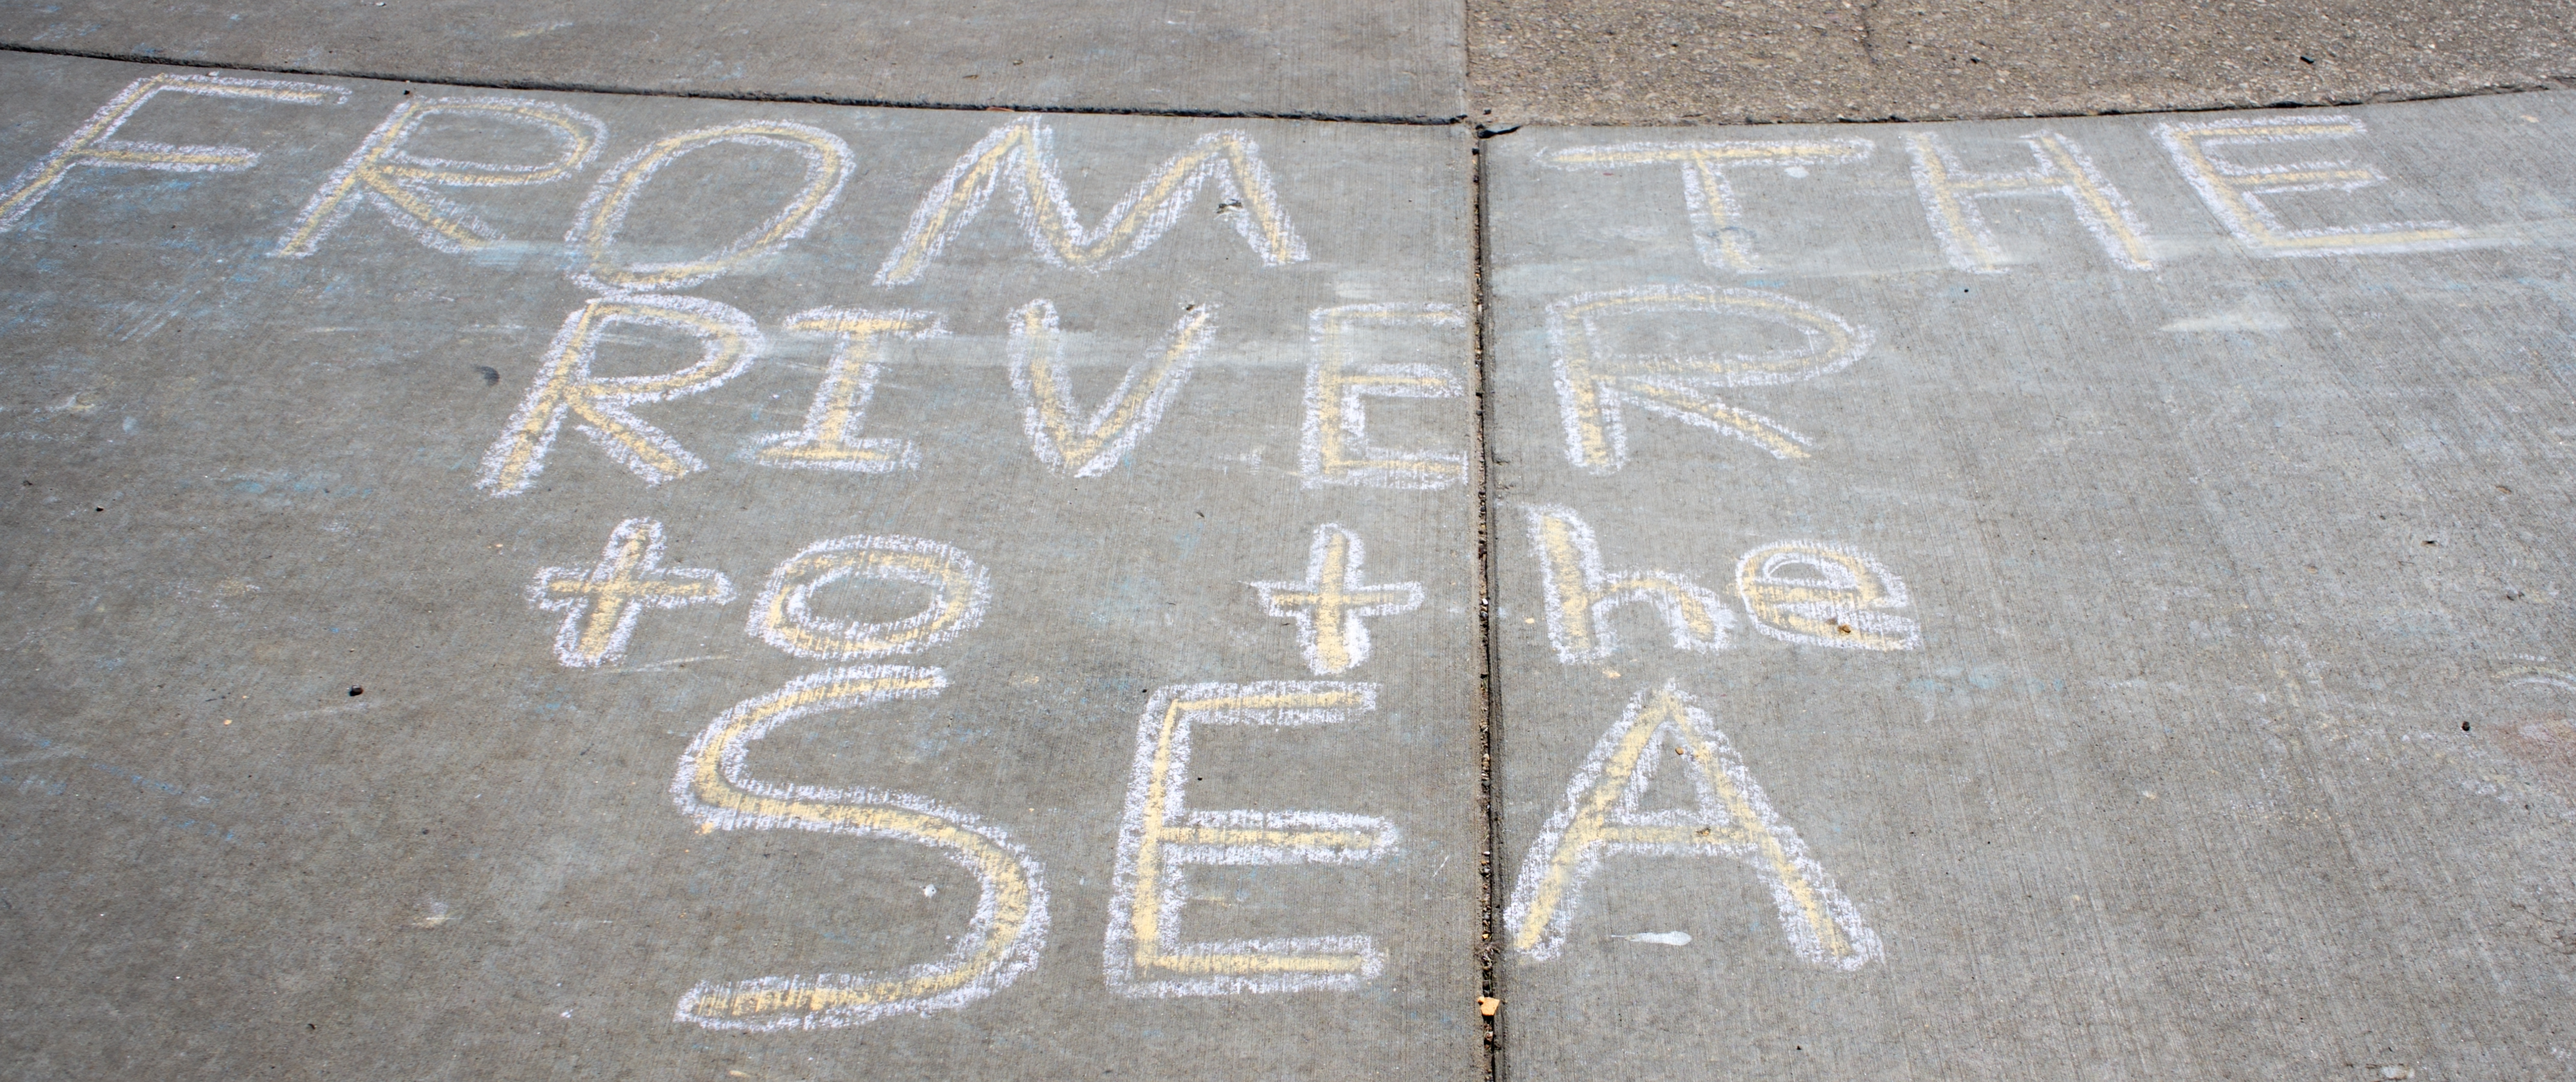 FROM THE
RIVER
to the
SEA